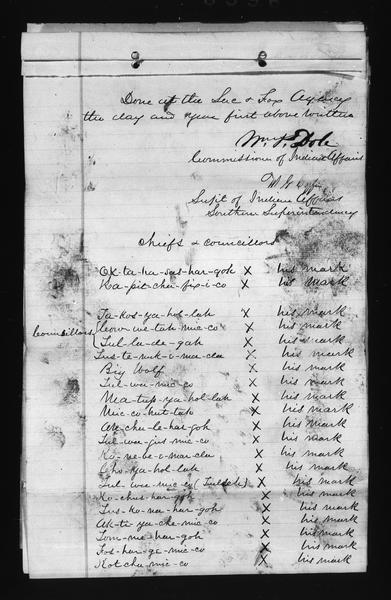 Done at the Sac & Fox Agency
the day and year first above written
Wm P. Dole
Commissioner of Indian Affairs
Supt of Indian Affairs
Southern Superintendency
Chiefs & councillors
Ok-ta-ha-sas-har-goh X his mark
Ka-pit-cha-fix-i-co X his mark
Ta-kos-ya-hol-lah X his mark
Councillors
Cow-we-tah-mic-co X his mark
Tul-la-de-gah X his mark
Tus-te-nuk-o-mar-cha X his mark
Big Wolf X his mark
Tul-wa-mic-co X his mark
Ma-tup-ya-hol-lah X his mark
Mic-co-hut-tah X his mark
Ak-chu-le-har-goh X his mark
Tul-wa-gis-mic-co X his mark
Ko-ne-be-o-mar-cha X his mark
Cho-ya-hol-lah X his mark
Tul-wa-mic-co X his mark
Ko-chus-har-goh X his mark
Tus-ko-na-har-goh X his mark
Ak-ti-ya-che-mic-co X his mark
Tom-me-har-goh X his mark
Fos-har-ge-mic-co X his mark
Kot-cha-mic-co X his mark